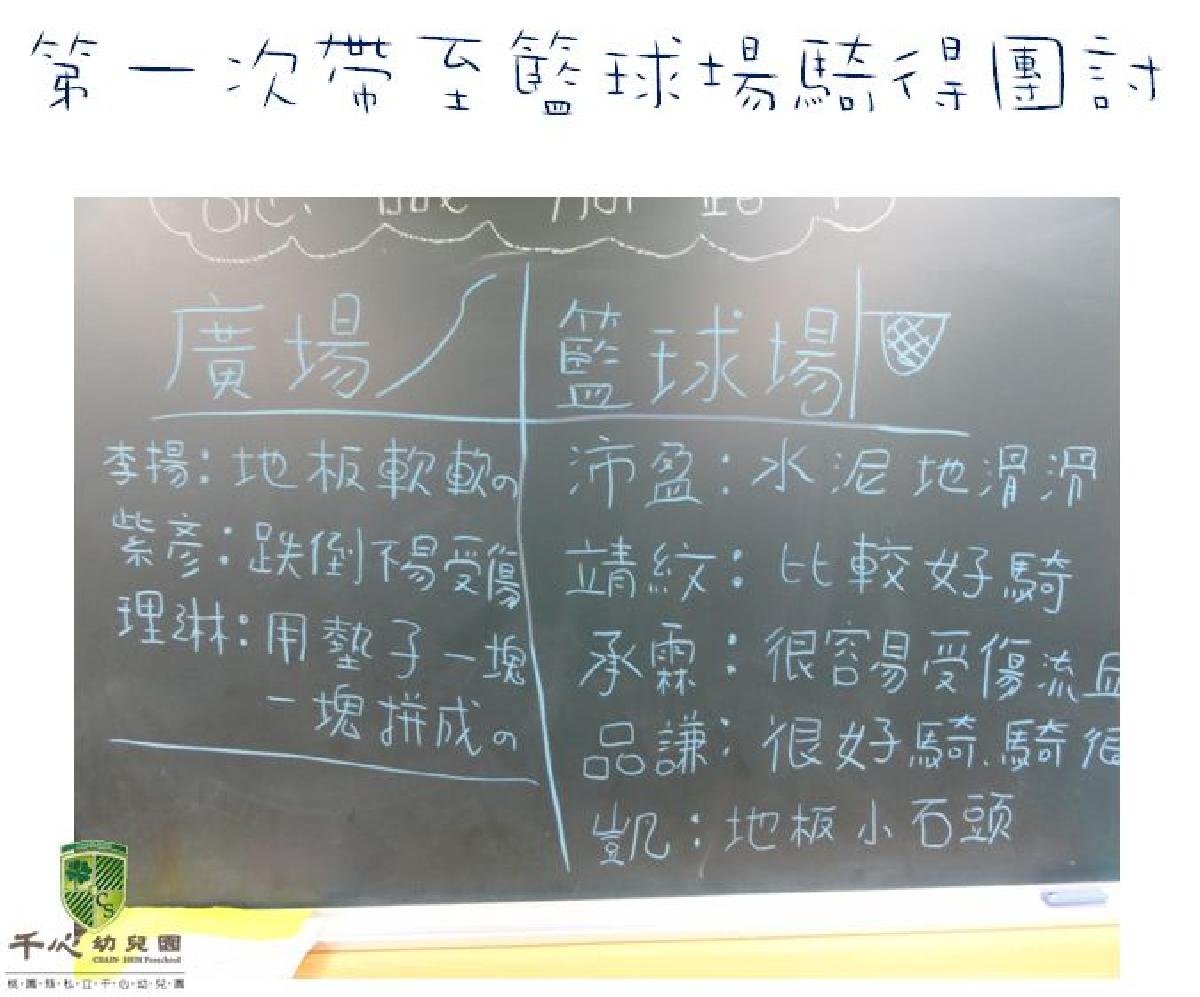 第一次帶至籃球場騎得團討
廣場
李揚:地板軟軟の
紫彥:跌倒不易受傷
理淋:用墊子一塊
一塊拼成の
籃球場
沛盈:水泥地滑滑
靖紋:比較好騎
承霖:很容易受傷流血
品謙:很好騎、騎很
凱:地板小石頭
千心幼兒園
CHAIN SHIN Preschool
桃園縣私立千心幼兒園
CS